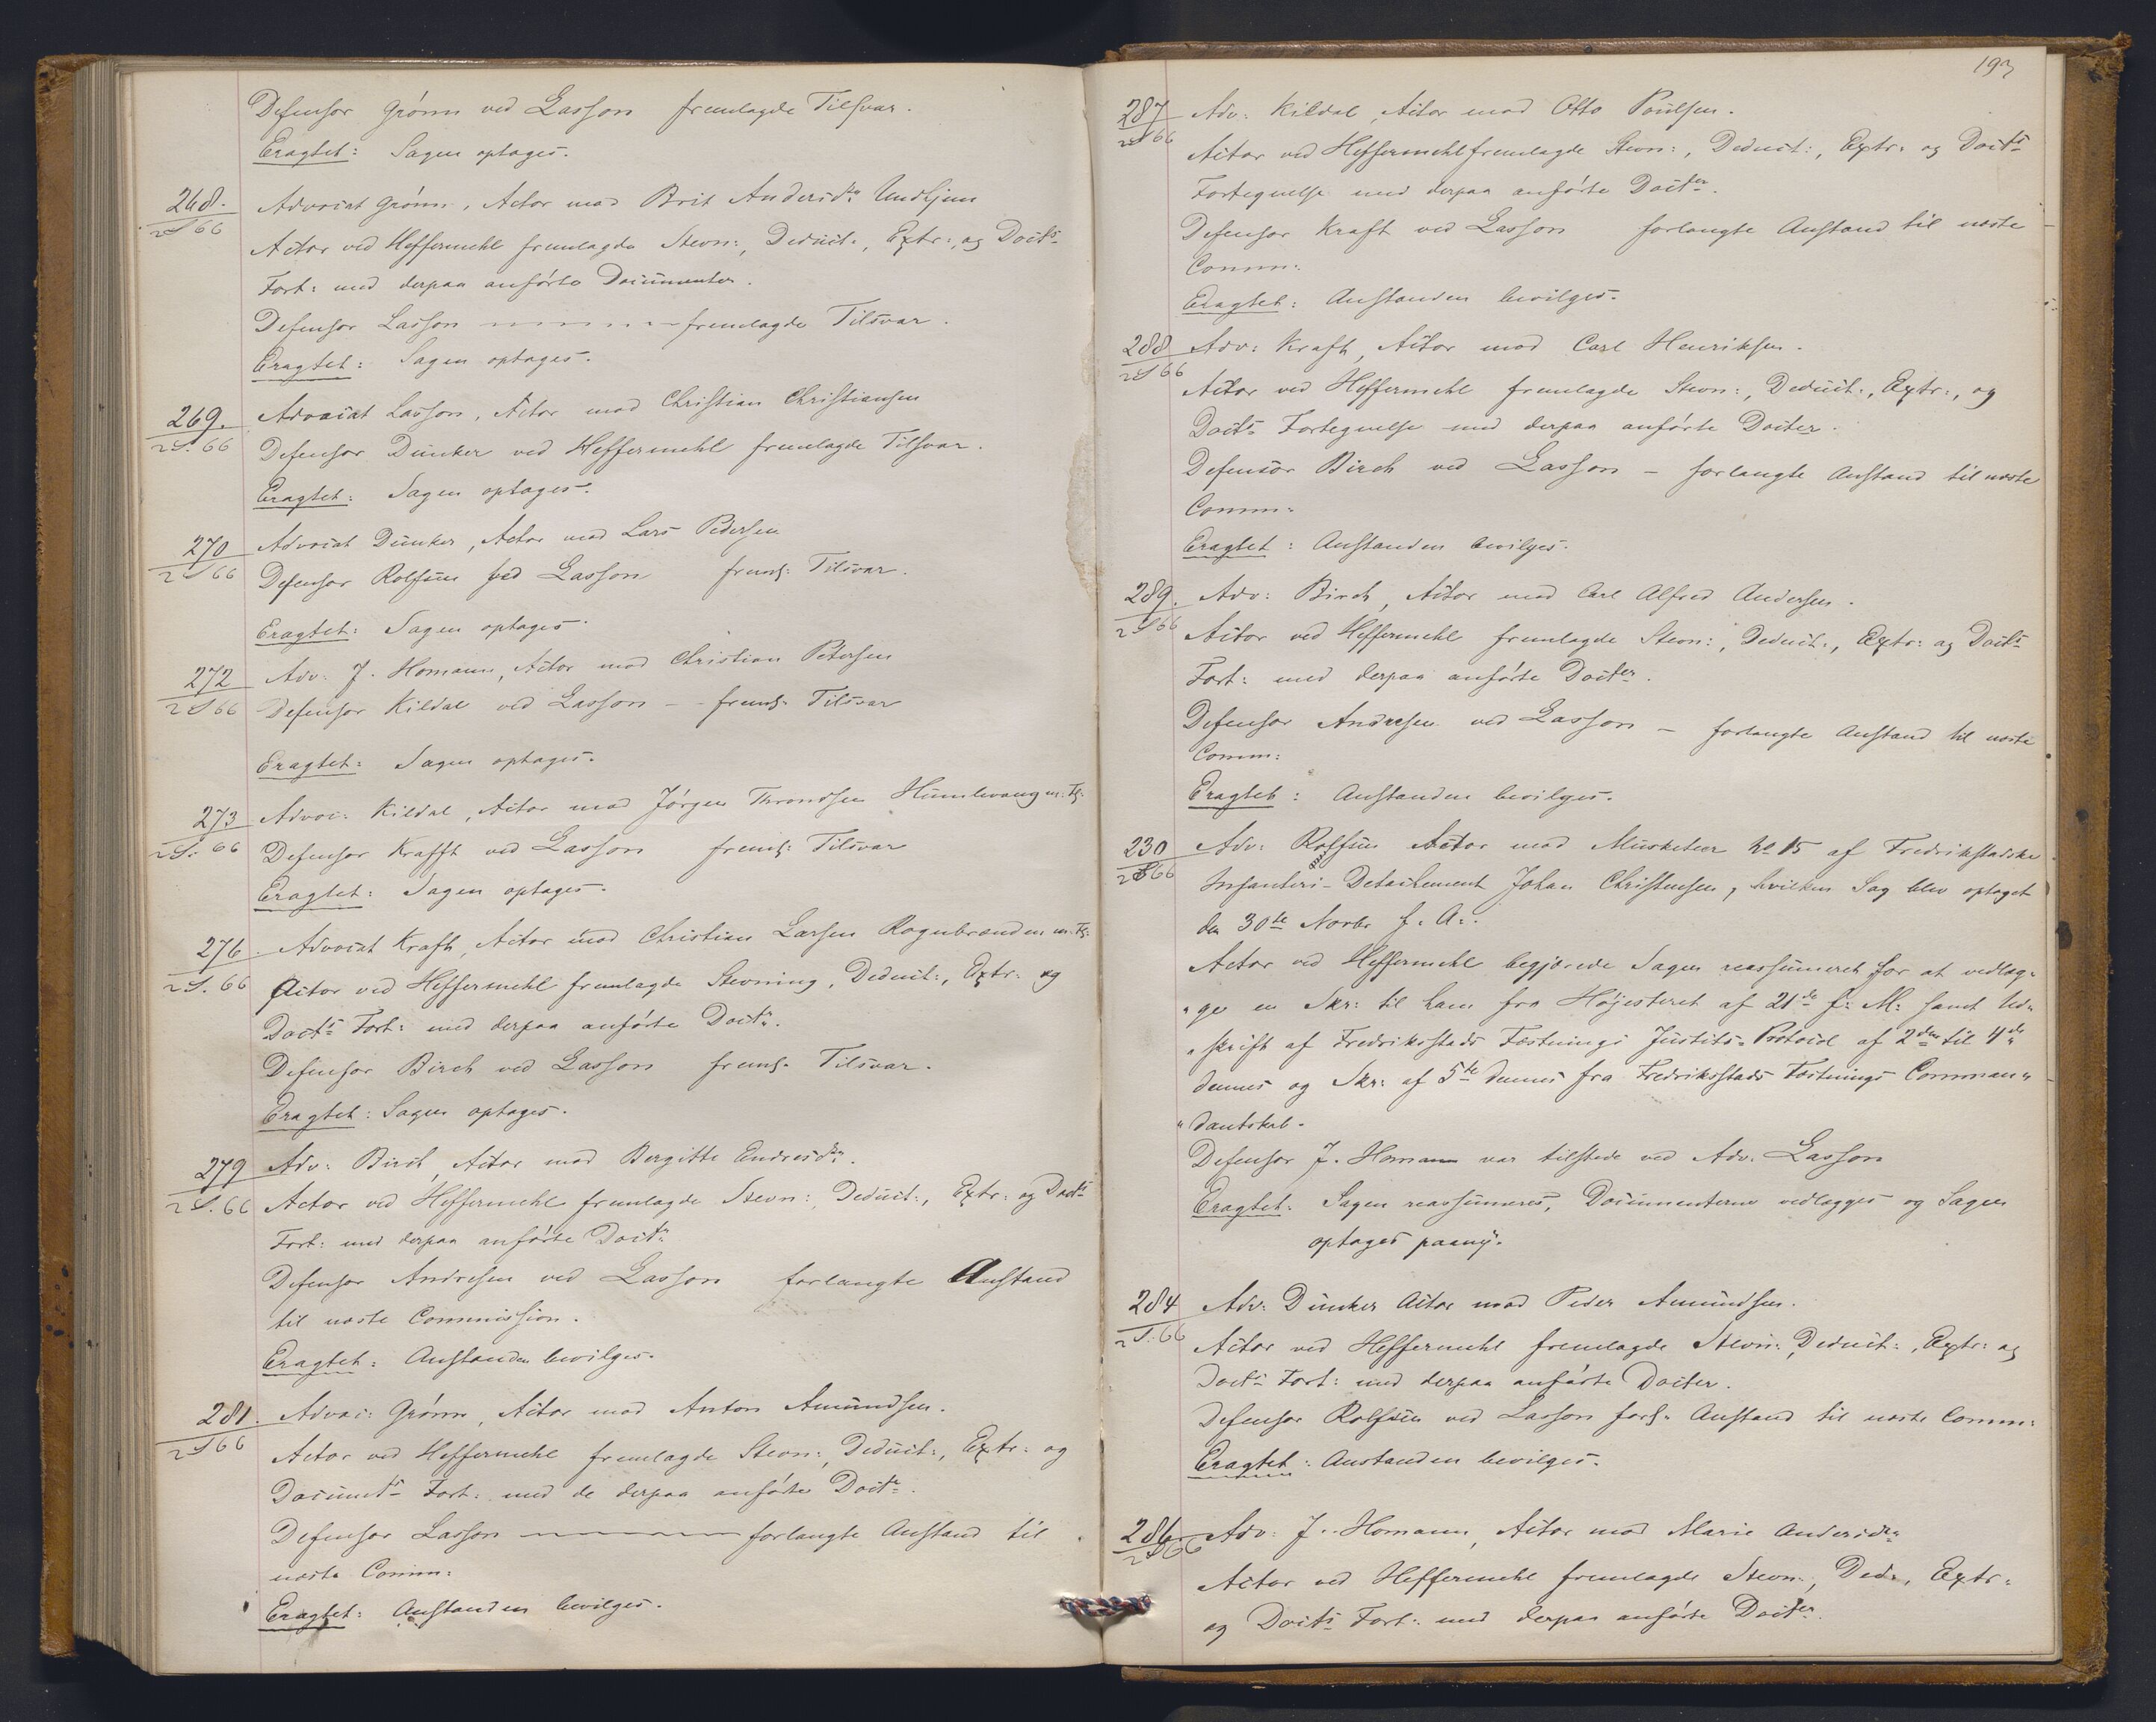 Defensor Grönn ved Lasson fremlagde Tilsvar.
Eragtet: Sagen optages.
268.
2 S 66
Advocat Grönn, Actor mod Brit Andersdr Undljem
Actor ved Heffermehl fremlagde Stevn:, Deduct:, Extr:, og Docts
Fort: med derpaa anförte Documenter.
Defensor Lasson fremlagde Tilsvar.
Eragtet: Sagen optages.
269.
2 S. 66
Advocat Lasson, Actor mod Christian Christiansen
Defensor Dunker ved Heffermehl fremlagde Tilsvar.
Eragtet: Sagen optages.
270
2 S 66
Advocat Dunker, Actor mod Lars Pedersen
Defensor Rolfsen ved Lasson freml: Tilsvar.
Eragtet: Sagen optages.
272
2 S 66
Adv: J. Homann, Actor mod Christian Petersen
Defensor Kildal ved Lasson - freml: Tilsvar
Eragtet: Sagen optages.
273
2 S. 66
Advoc: Kildal, Actor mod Jörgen Throndsen Humlevang m: Fl:
Defensor Krafft ved Lasson freml: Tilsvar
Eragtet: Sagen optages.
276.
2 S. 66
Advocat Kraft, Actor mod Christian Larsen Rognbrænden m: Fl:
Actor ved Heffermehl fremlagde Stevning, Deduct:, Extr: og
Docts Fort: med derpaa anförte Doctr.
Defensor Birch ved Lasson freml: Tilsvar.
Eragtet: Sagen optages.
279
2 S. 66
Adv: Birch, Actor mod Bergitte Endresdtr.
Actor ved Heffermehl fremlagde Stevn:, Deduct:, Extr: og Docts
Fort: med derpaa anförte Doctr
Defensor Andresen ved Lasson forlangte Anstand
til næste Commission.
Eragtet: Anstanden bevilges.
281.
2 S 66
Advoc: Grönn, Actor mod Anton Amundsen.
Actor ved Heffermehl fremlagde Stevn:, Deduct:, Extr: og
Documts Fort: med de derpaa anförte Doctr.
Defensor Lasson forlangte Anstand til
næste Comm:
Eragtet: Anstanden bevilges.
193
287
2 S 66
Adv: Kildal, Actor mod Otto Poulsen.
Actor ved Heffermehl fremlagde Stevn:, Deduct:, Extr: og Docts
Fortegnelse med derpaa anförte Docter.
Defensor Kraft ved Lasson forlangte Anstand til næste
Comm:
Eragtet: Anstanden bevilges.
288
2 S 66
Adv: Kraft, Actor mod Carl Henriksen.
Actor ved Heffermehl fremlagde Stevn:, Deduct:, Extr:, og
Docts Fortegnelse med derpaa anförte Docter.
Defensor Birch ved Lasson - forlangte Anstand til næste
Comm:
Eragtet: Anstanden bevilges.
289.
2 S 66
Adv: Birch, Actor mod Carl Alfred Andersen.
Actor ved Heffermehl fremlagde Stevn:, Deduct:, Extr: og Docts
Fort: med derpaa anförte Docter.
Defensor Andresen ved Lasson - forlangte Anstand til næste
Comm:
Eragtet: Anstanden bevilges.
230
2 S 66
Adv: Rolfsen Actor mod Musketeer No 15 af Fredrikstadske
Infanteri-Detachement Johan Christensen, hvilken Sag blev optaget
den 30te Novbr f. A:.
Actor ved Heffermehl begjærede Sagen reassumeret for at vedlæg-
"ge en Skr: til ham fra Höjesteret af 21de f: M: samt Ud-
"skrift af Fredriksstads Fæstnings Justits-Protocol af 2den til 4de
dennes og Skr: af 5te dennes fra Fredriksstads Fæstnings Comman-
"dantskab.
Defensor J. Homann var tilstede ved Adv. Lasson
Eragtet: Sagen reassumeres, Documenterne vedlægges og Sagen
optages paany.
284
2 S. 66
Adv: Dunker Actor mod Peder Amundsen.
Actor ved Heffermehl fremlagde Stevn:, Deduct:, Extr: og
Docts Fort: med derpaa anförte Docter.
Defensor Rolfsen ved Lasson forl: Anstand til næste Comm:
Eragtet: Anstanden bevilges.
286
2 S 66
Adv: J. Homann, Actor mod Marie Andersdr
Actor ved Heffermehl fremlagde Stevn:, Ded:, Extr:
og Docts Fort: med derpaa anförte Docter.